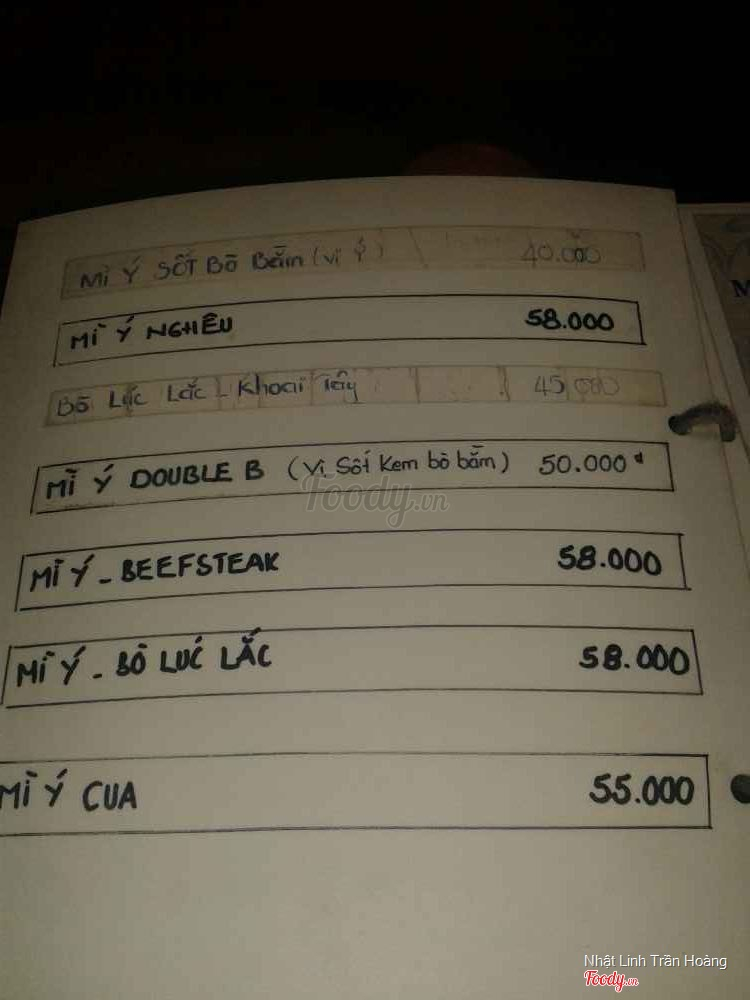 MÌ Ý SỐT BÒ BẰM (vị Ý) 40.000
MÌ Ý NGHÊU 58.000
BÒ LÚC LẮC - KHOAI TÂY 45.000
MÌ Ý DOUBLE B (Vị Sốt Kem bò bằm) 50.000đ
Foody.vn
MÌ Ý - BEEFSTEAK 58.000
MÌ Ý - BÒ LÚC LẮC 58.000
MÌ Ý CUA 55.000
M
Nhật Linh Trần Hoàng
Foody.vn